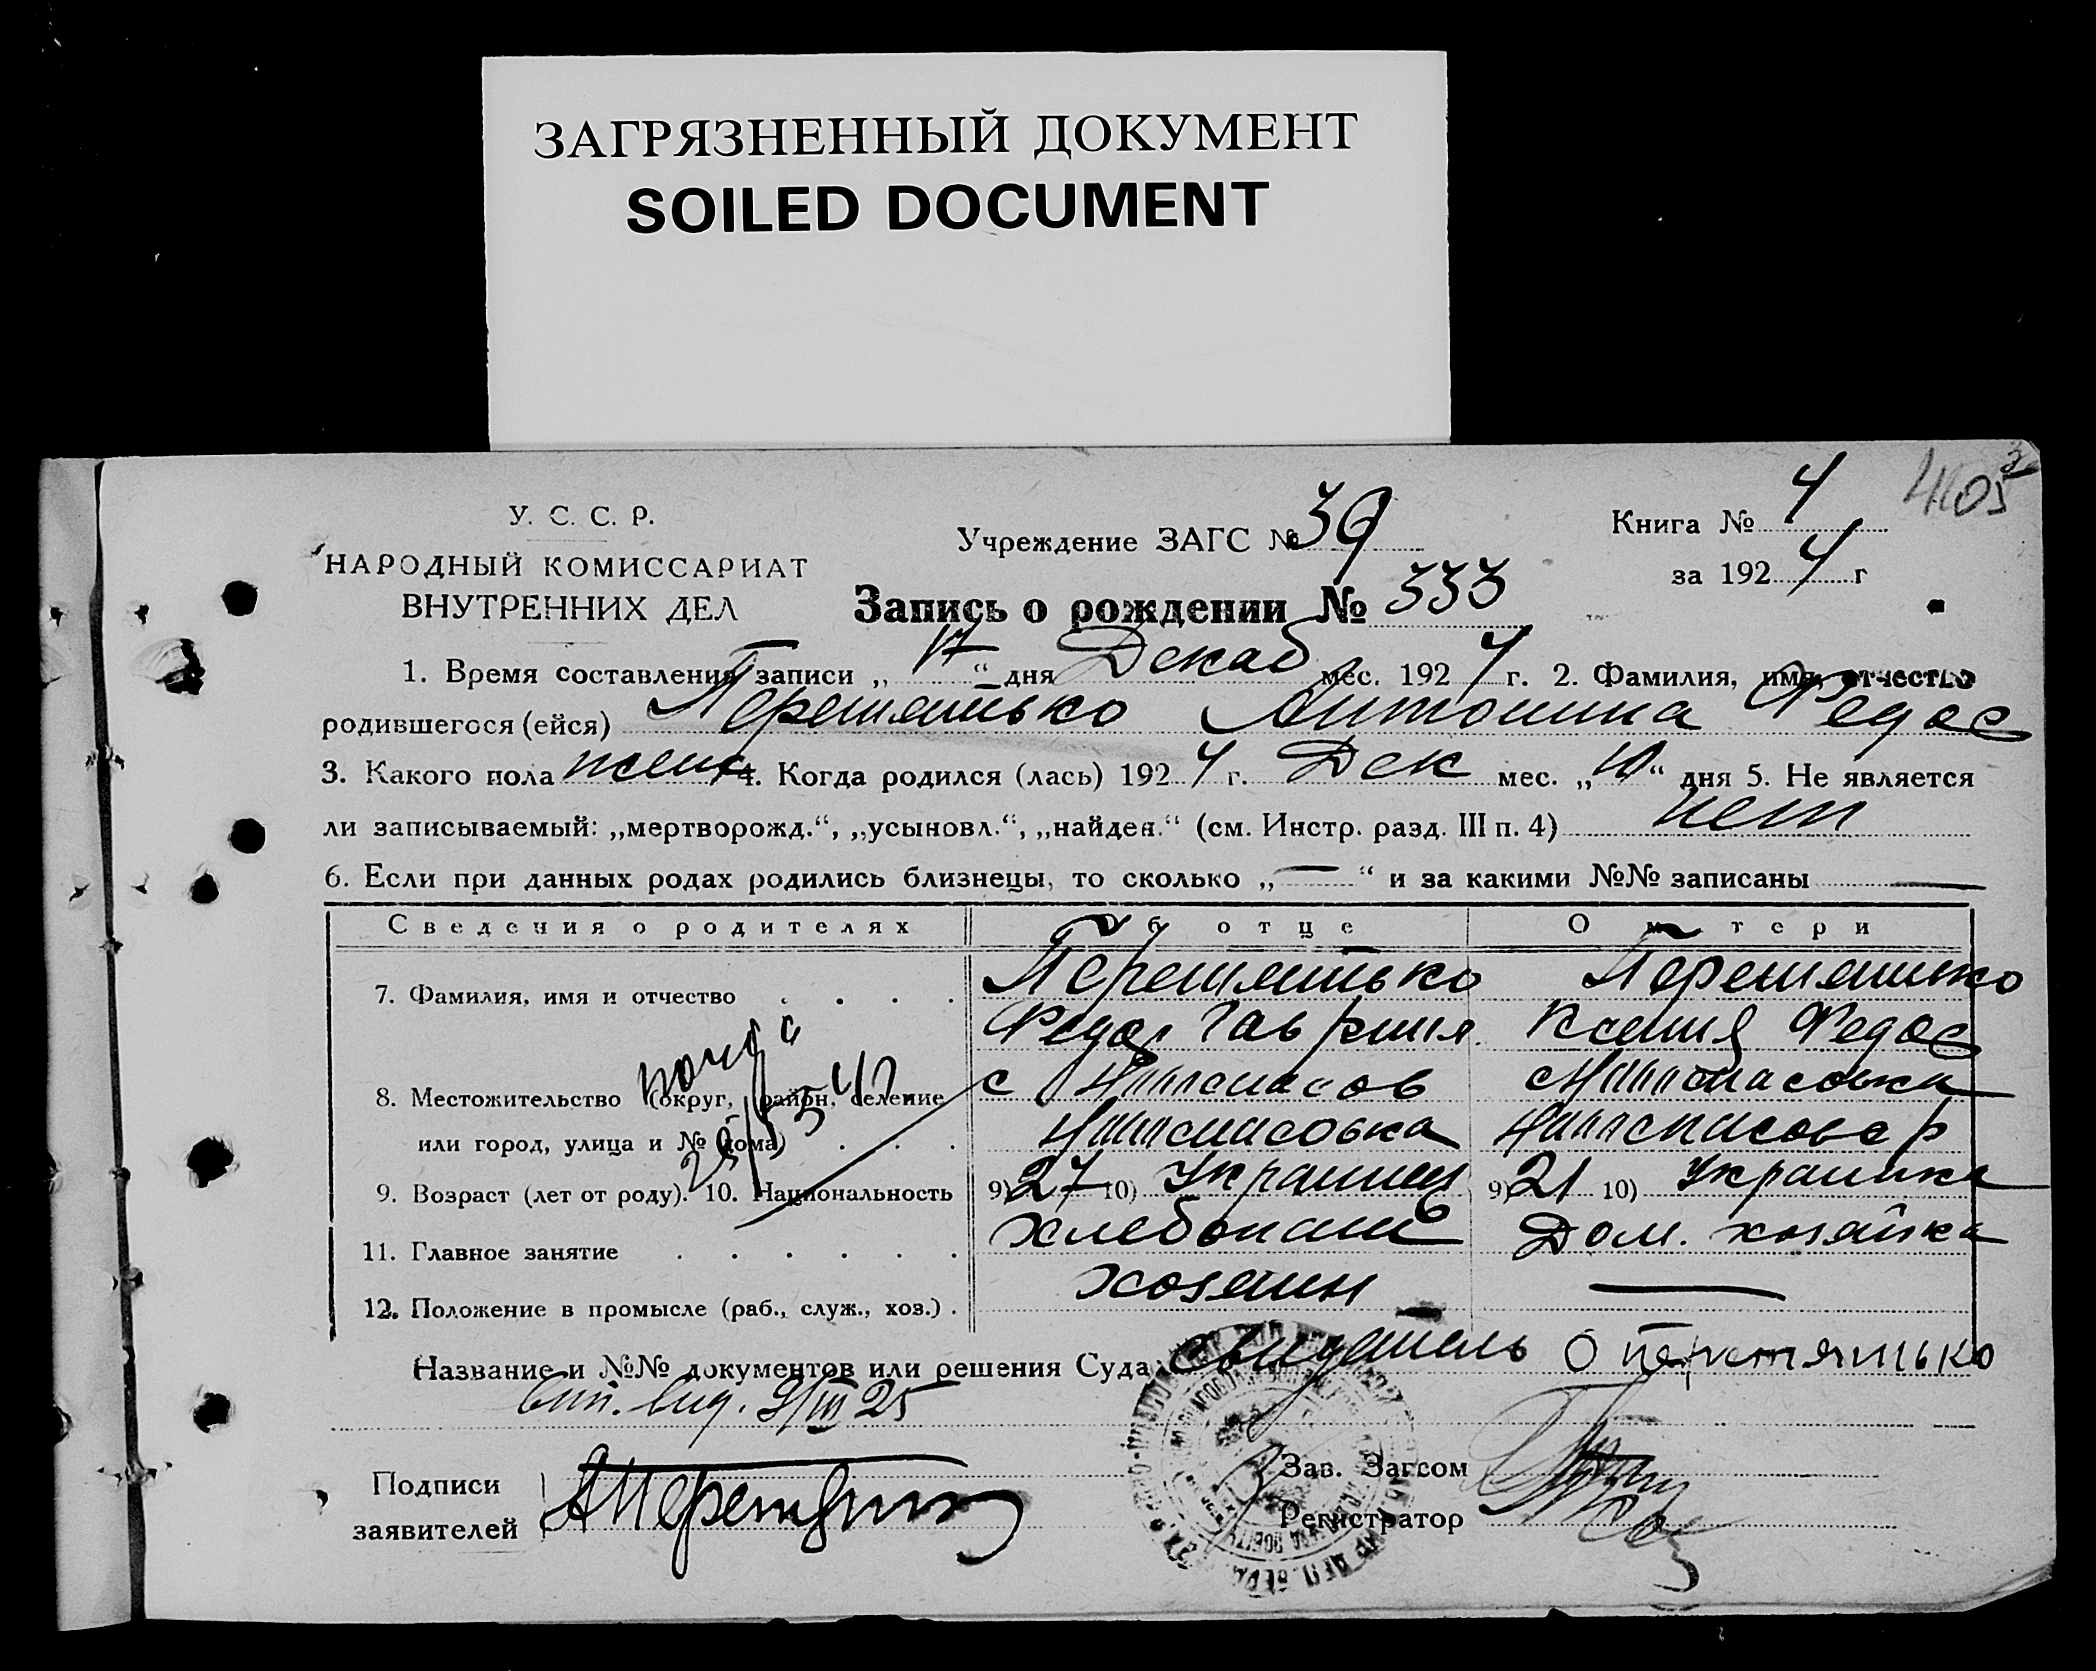 ЗАГРЯЗНЕННЫЙ ДОКУМЕНТ
SOILED DOCUMENT
4105
У. С. С. Р.
НАРОДНЫЙ КОМИССАРИАТ
ВНУТРЕННИХ ДЕЛ
Учреждение ЗАГС № 39
Книга № 4
за 1924 г
Запись о рождении № 333
1. Время составления записи „17“ дня Декаб мес. 1924 г. 2. Фамилия, имя, отчество
родившегося (ейся) Перетятько Антонина Федос
3. Какого пола жен 4. Когда родился (лась) 1924 г. Дек мес. „10“ дня 5. Не является
ли записываемый: „мертворожд.“, „усыновл.“, „найден.“ (см. Инстр. разд. III п. 4) нет
6. Если при данных родах родились близнецы, то сколько „—“ и за какими №№ записаны —
Сведения о родителях Об отце О матери
7. Фамилия, имя и отчество Перетятько Перетятько
Федос Гаврил Ксения Федос
8. Местожительство (округ, район, селение с
или город, улица и № дома)
9. Возраст (лет от роду). 10. Национальность 9) 27 10) Украинец 9) 21 10) Украинка
11. Главное занятие Хлебопаш Дом. хозяйка
12. Положение в промысле (раб., служ., хоз.) хозяин —
Название и №№ документов или решения Суда О Перетятько
25
Подписи
заявителей
Зав. Загсом
Регистратор